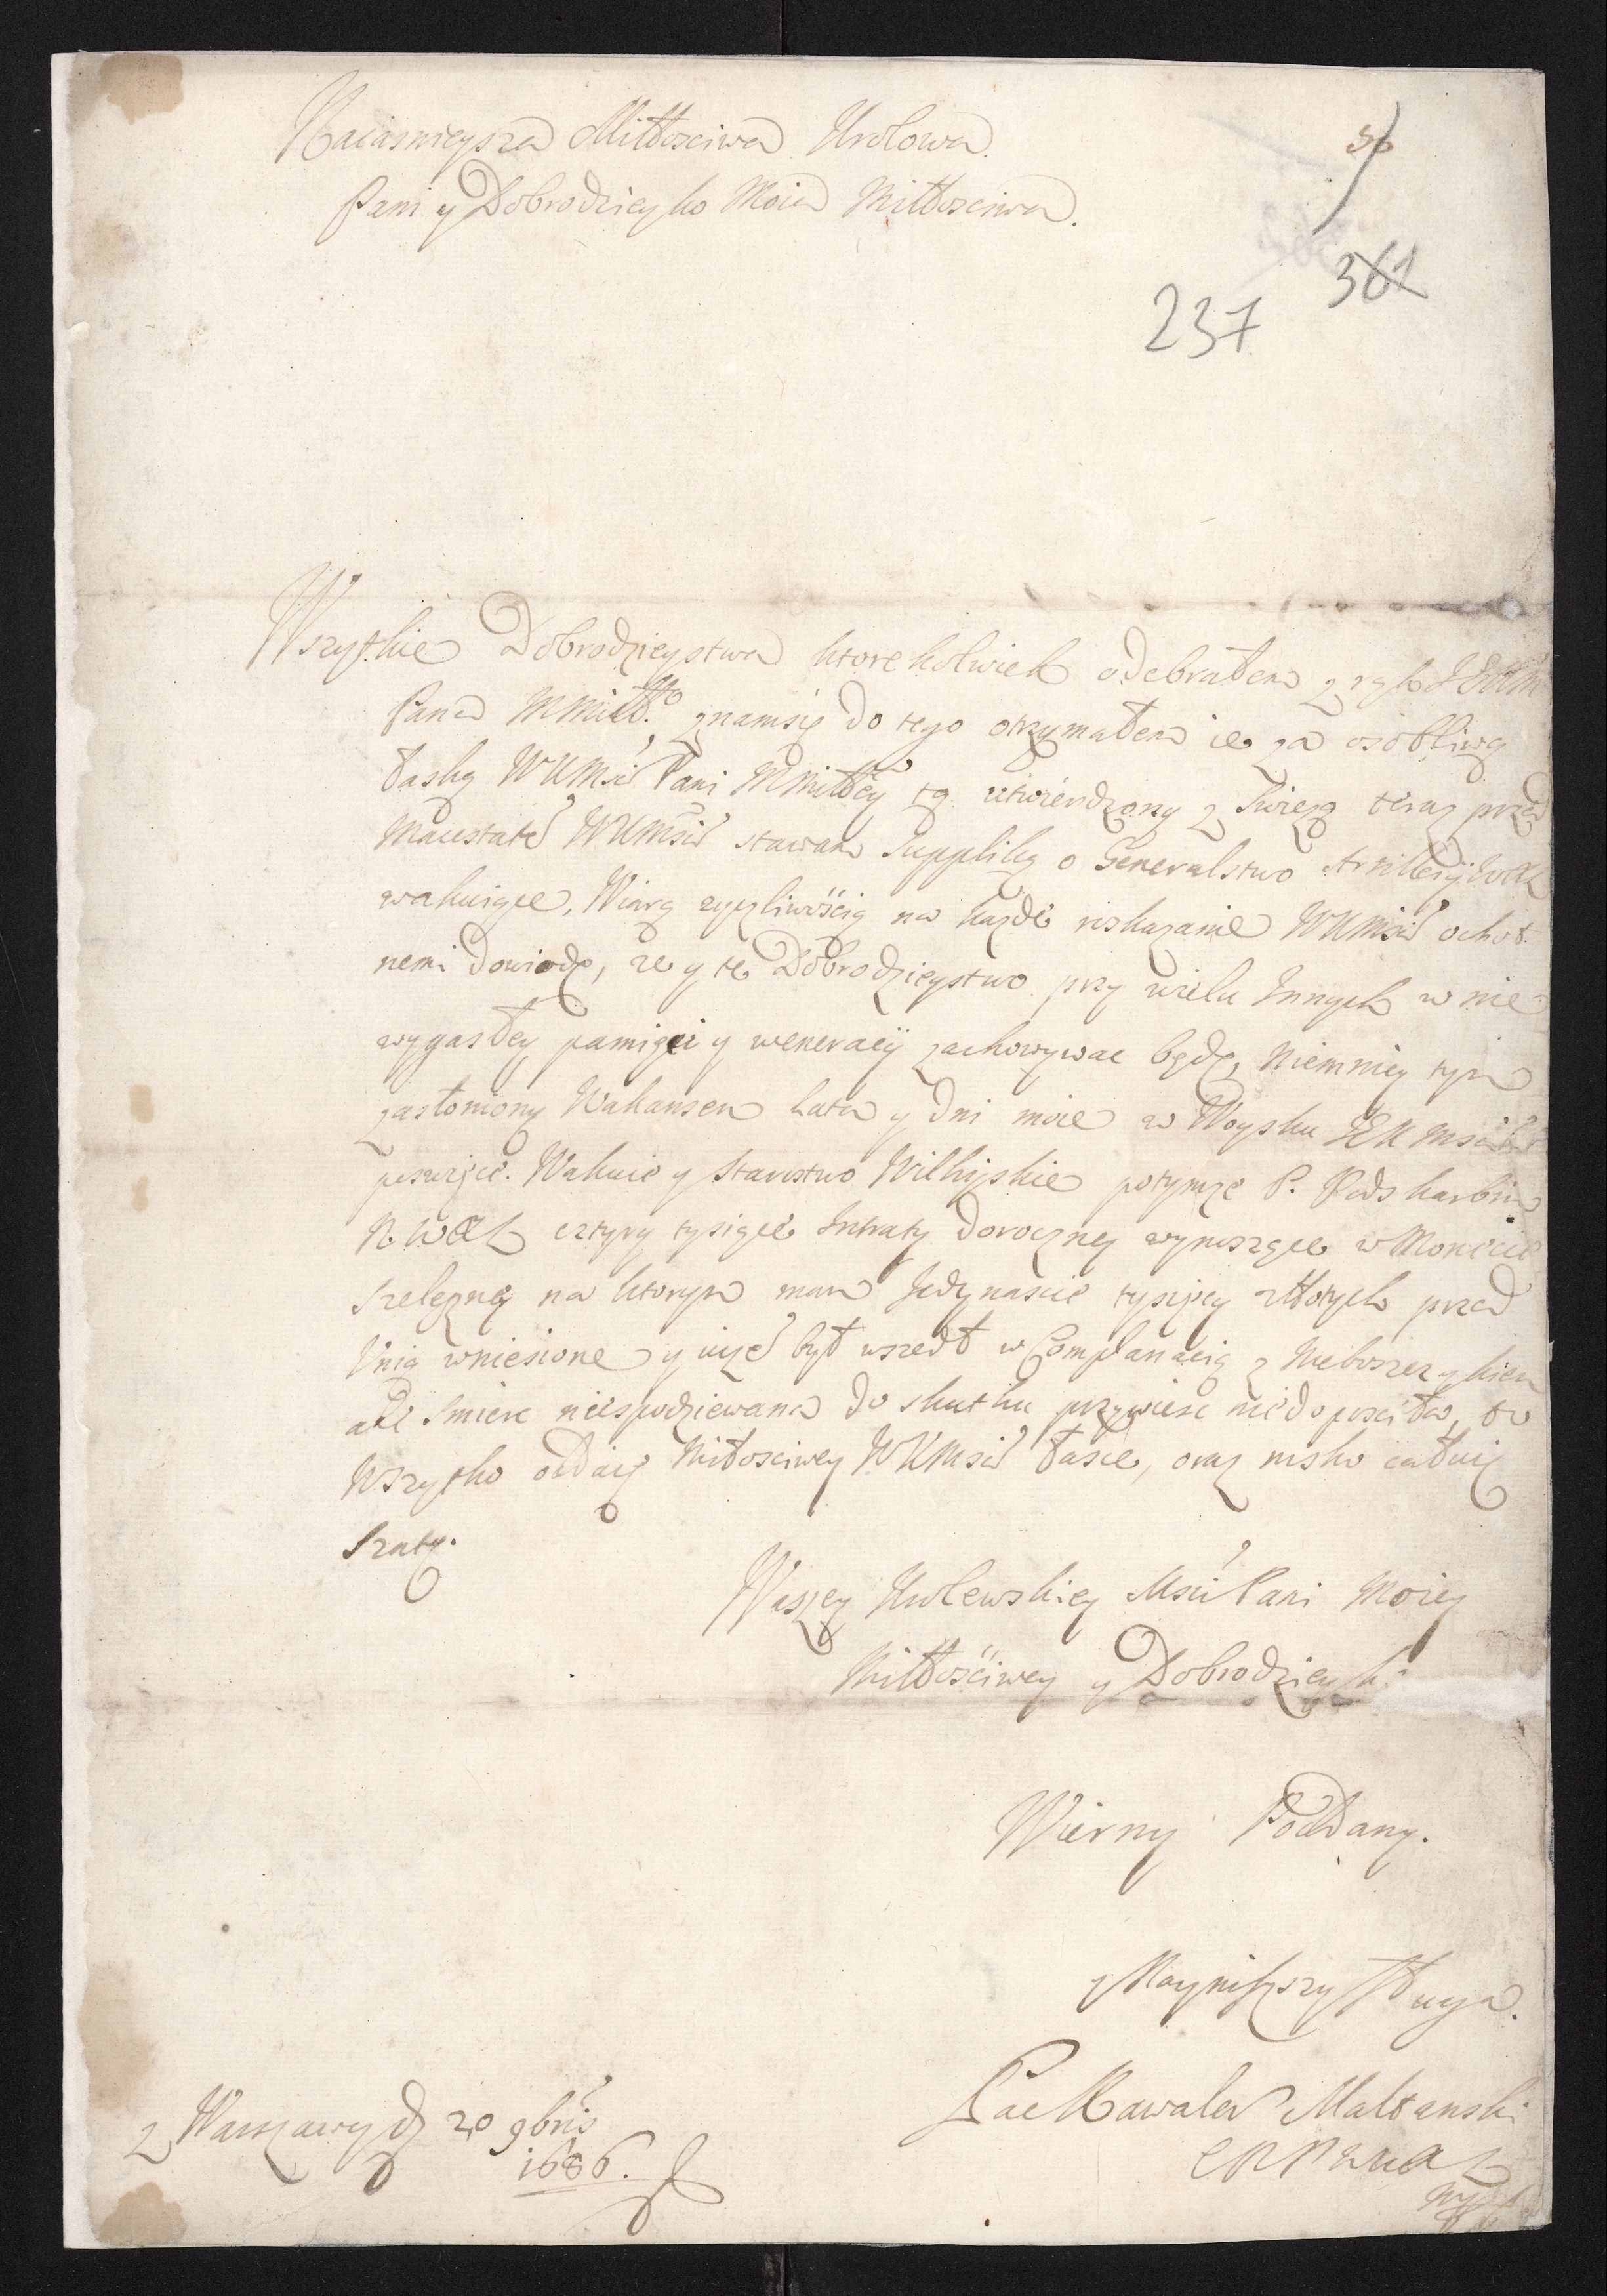 Naiasnieysza Miłłosciwa Krolowa
Pani y Dobrodzieyko Moia Miłłosciwa.
56
361
237
Wszytkie Dobrodzieystwa ktorekolwiek odebrałem z rąk JEKM
Pana MMiłł.º znamsię do tego otrzymałem ie za osobliwą
łaską WKMsci Pani MMiłłey tą utwierdzony z swiezą teraz przed
Maiestatē WKMsci stawam supplika o Generalstwo Artilleryi WXL
wakuiące, Wiarą zyczliwością na kazde roskazanie WKMsci ochot.
nemi dowiodę, ze y te Dobrodzieystwo przy wielu Innych w nie-
wygasłey pamięci y weneracyi zachowywac będę, niemniey tym
zasłoniony Wakansem Lata y dni moie w Woysku JEKMsci
poswięcę. Wakuie y Starostwo Wilkiyskie potymze P. Podskarbim
N. WXL cztyry tysiące Intraty doroczney wynoszące w Monecie
szelezney na ktorym mam Jedynascie tysięcy złłotych przed
Unią wniesione y iuze był wszedł w Complanacią z Nieboszczykiem
ale smierc niespodziewana do skutku przywiesc niedopuscila, to
Wszytko oddaię Miłosciwey WKMsci łasce, oraz nisko całuię
Szatę.
Waszey Krolewskiey Msci Pani Moiey
Miłłościwey y Dobrodzieyki
Wierny Poddany.
y Naynizszy Sługa.
Pac Kawaler Maltanski
z Warszawy d 20 9bris
1686.